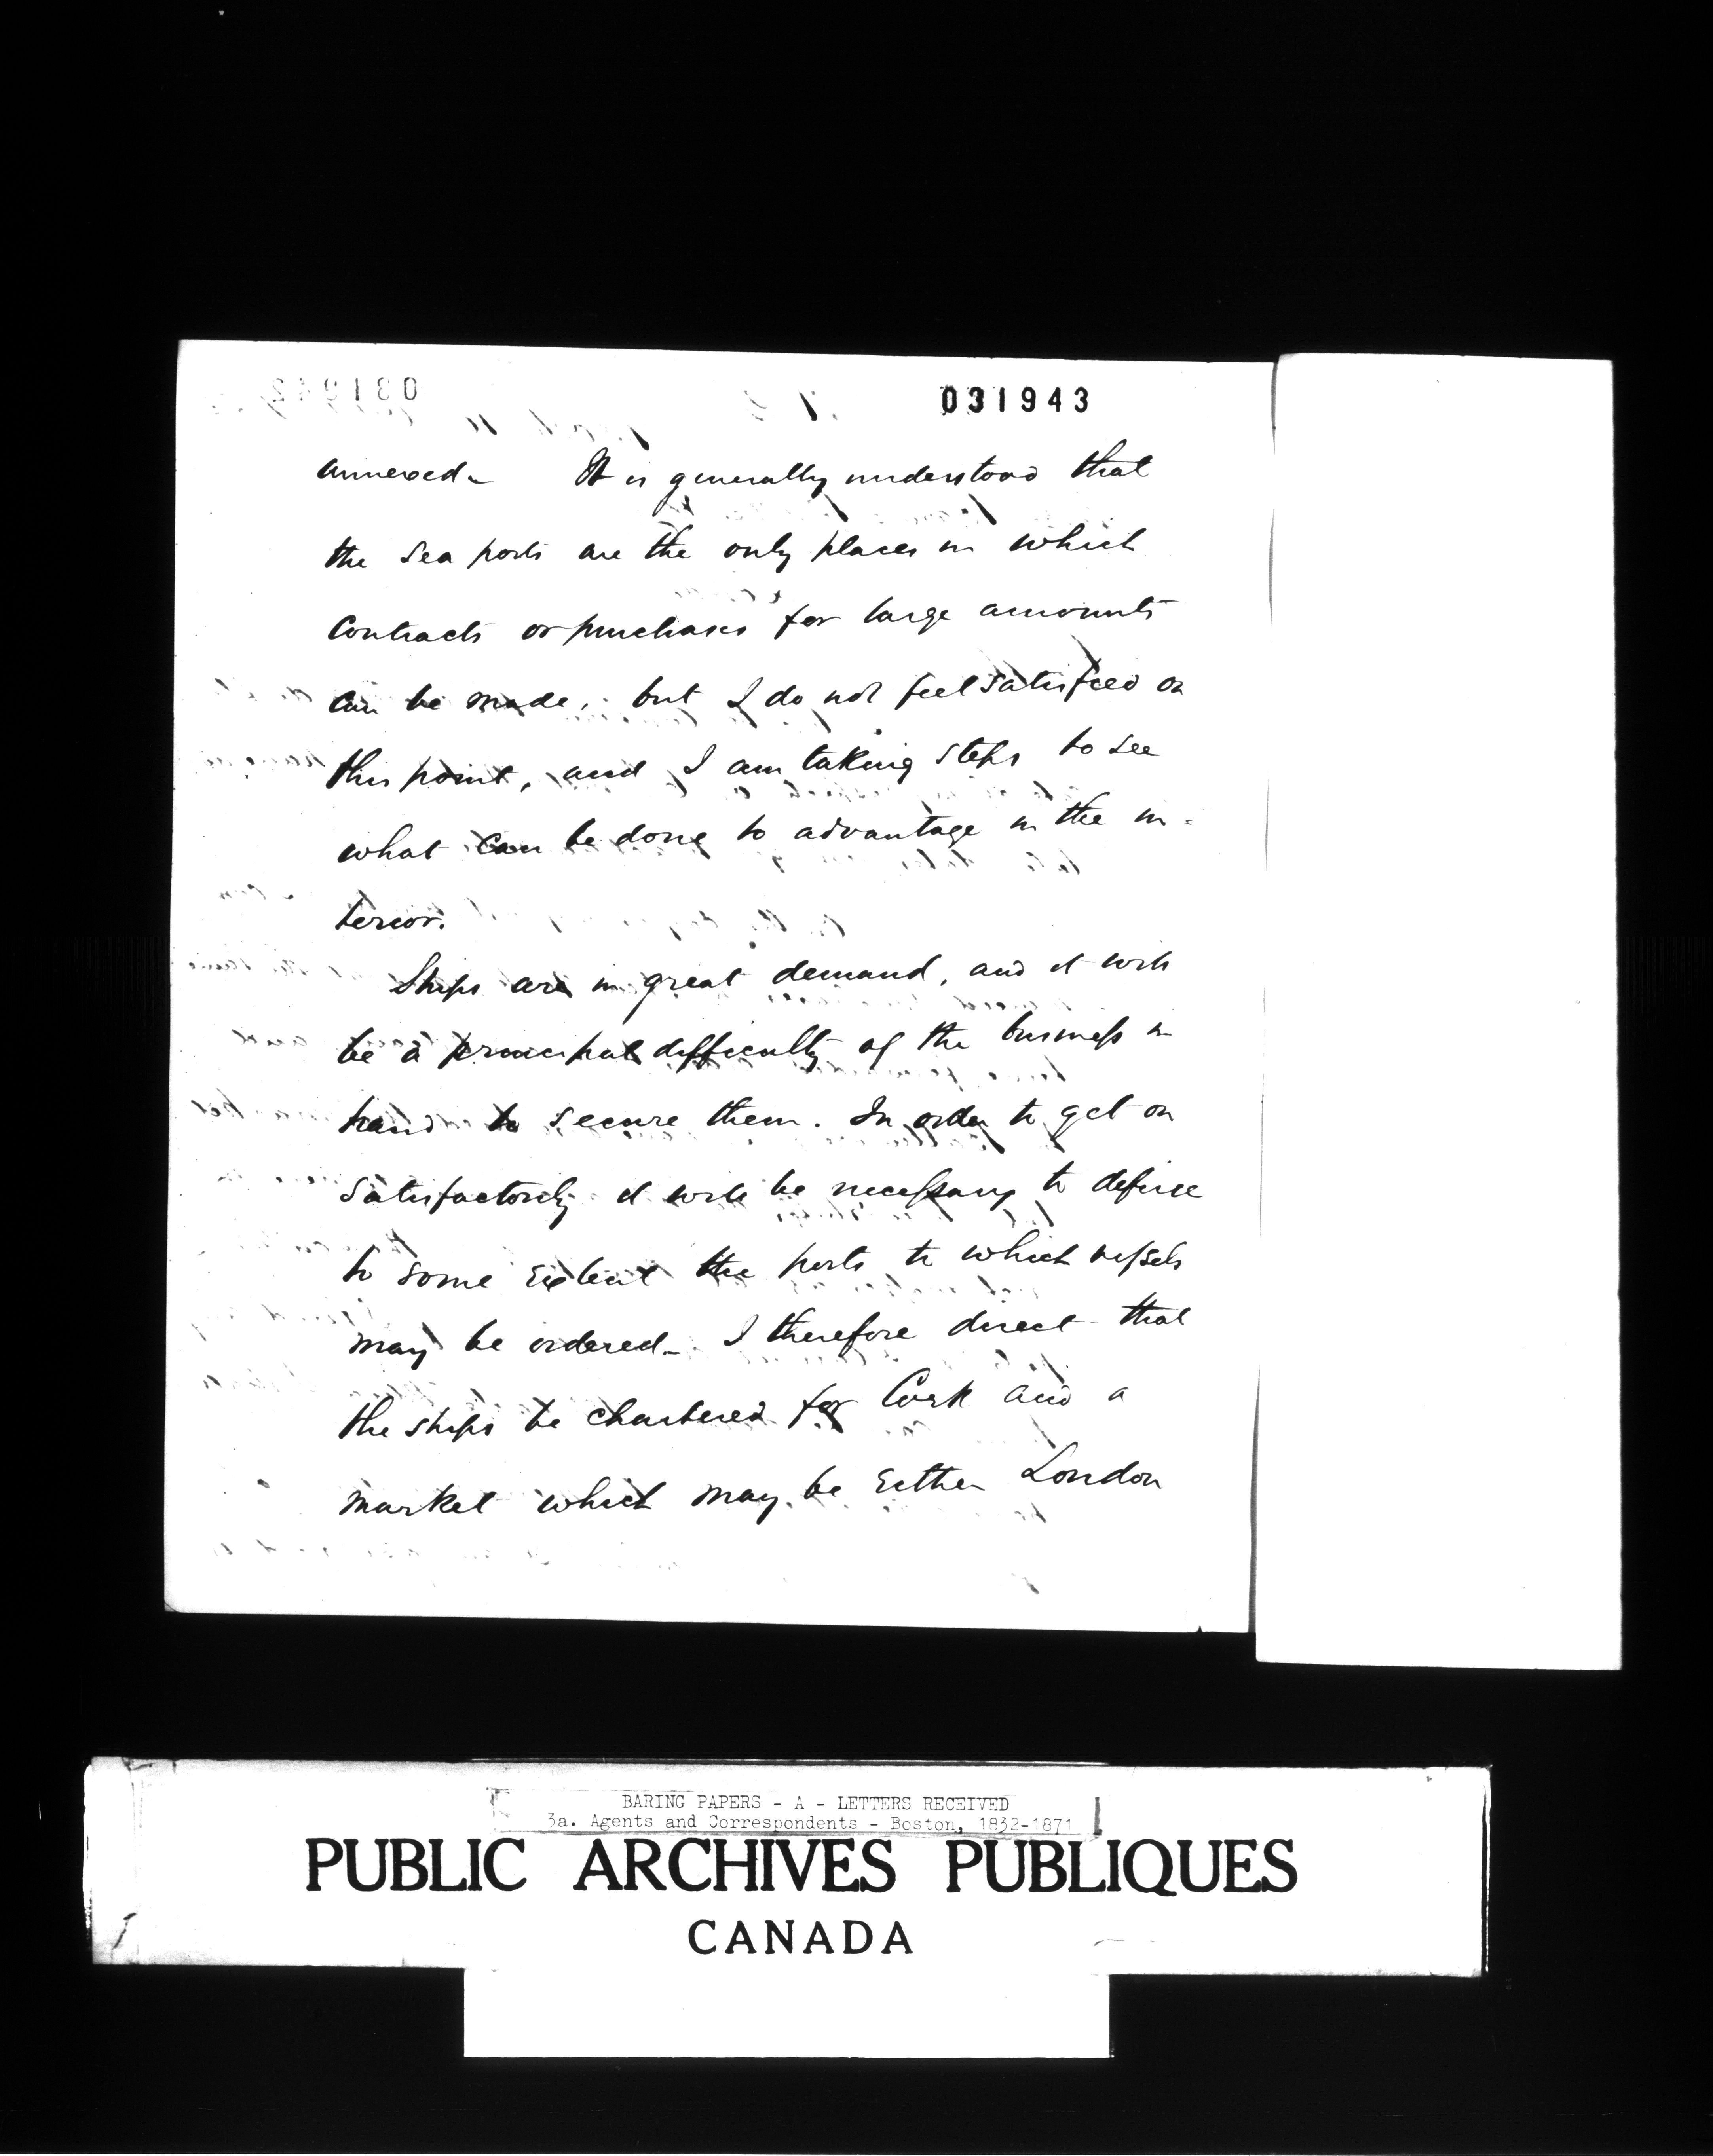 031943
annexed - It is generally understood that
the Sea ports are the only places in which
Contracts or purchases for large amounts
can be made, but I do not feel satisfied on
this point, and I am taking steps to see
what can be done to advantage in the in-
terior.
Ships are in great demand, and it will
be a principal difficulty of the business in
hand to secure them. In order to get on
satisfactorily it will be necessary to define
to some extent the ports to which vessels
may be ordered - I therefore direct that
the ships be chartered for Cork and a
market which may be either London
BARING PAPERS - A - LETTERS RECEIVED
3a. Agents and Correspondents - Boston, 1832-1871
PUBLIC ARCHIVES PUBLIQUES
CANADA